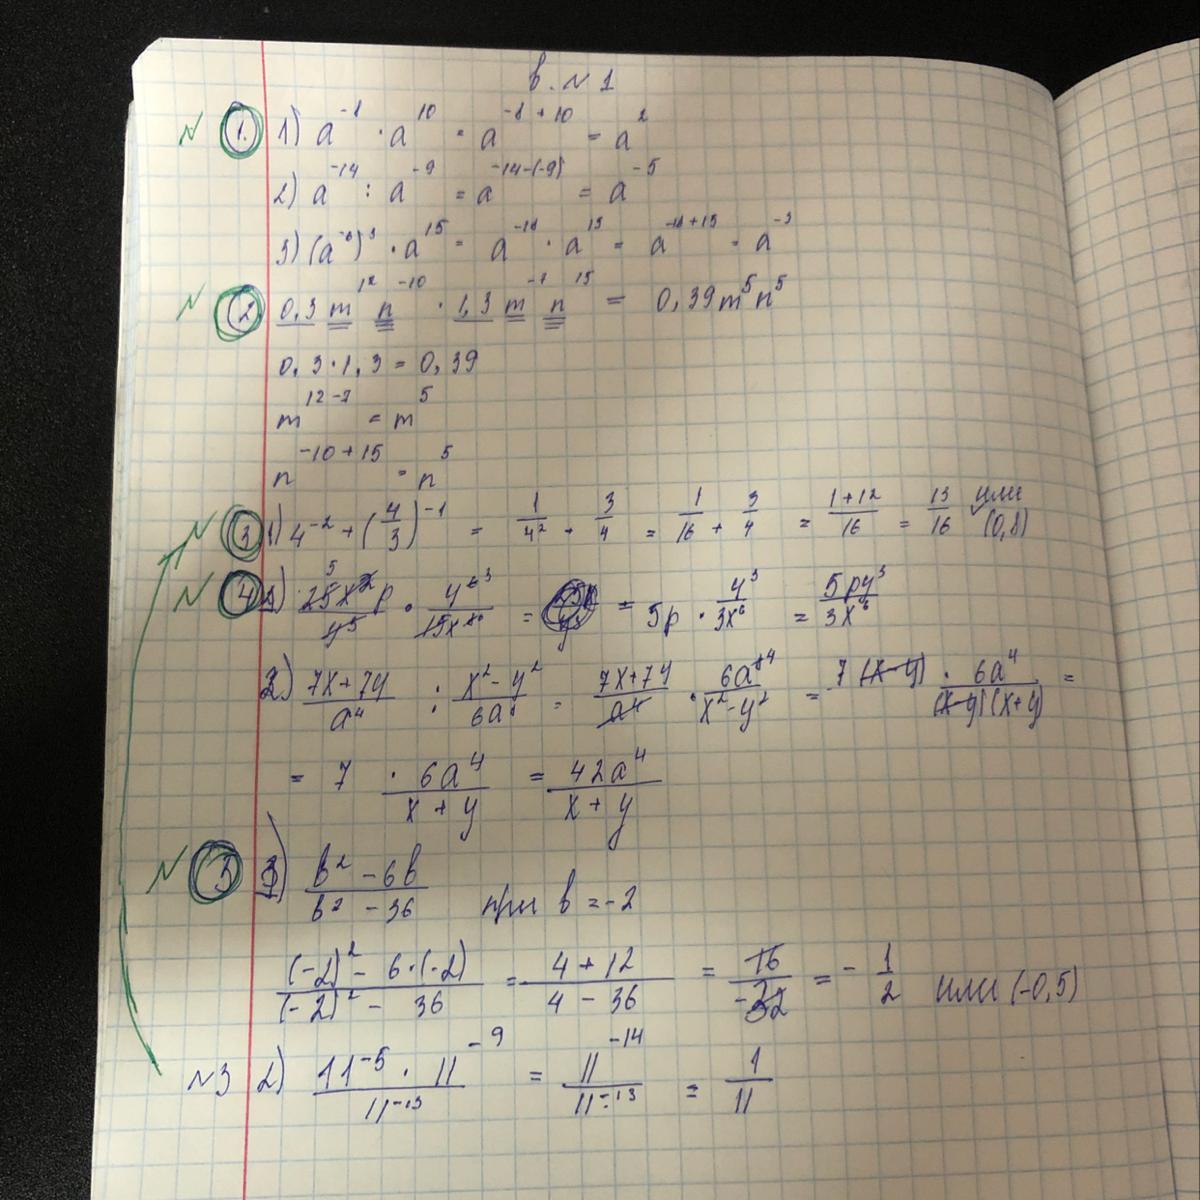 в. N 1
N 1. 1) a^-8 · a^10 = a^-8+10 = a^2
2) a^-14 : a^-9 = a^-14-(-9) = a^-5
3) (a^-6)^3 · a^15 = a^-18 · a^15 = a^-18+15 = a^-3
N 2 0,3 m^12 n^-10 · 1,3 m^-7 n^15 = 0,39m^5n^5
0,3·1,3 = 0,39
m^12-7 = m^5
n^-10+15 = n^5
N 3 1) 4^-2 + (4/3)^-1 = 1/4^2 + 3/4 = 1/16 + 3/4 = 1+12/16 = 13/16 или (0,8)
N 4 1) 25x^2p/y^5 · y^8/15x^8 = = 5p · y^3/3x^6 = 5py^3/3x^6
2) 7x+7y/a^4 : x^2-y^2/6a^8 = 7x+7y/a^4 · 6a^8 4/x^2-y^2 = 7(x-y) · 6a^4/(x-y)(x+y) =
= 7 · 6a^4/x+y = 42a^4/x+y
N 5 b^2-6b/b^2-36 при b=-2
(-2)^2-6·(-2)/(-2)^2-36 = 4+12/4-36 = 16/-32 = -1/2 или (-0,5)
N3 2) 11^-5 · 11^-9/11^-13 = 11^-14/11^-13 = 1/11